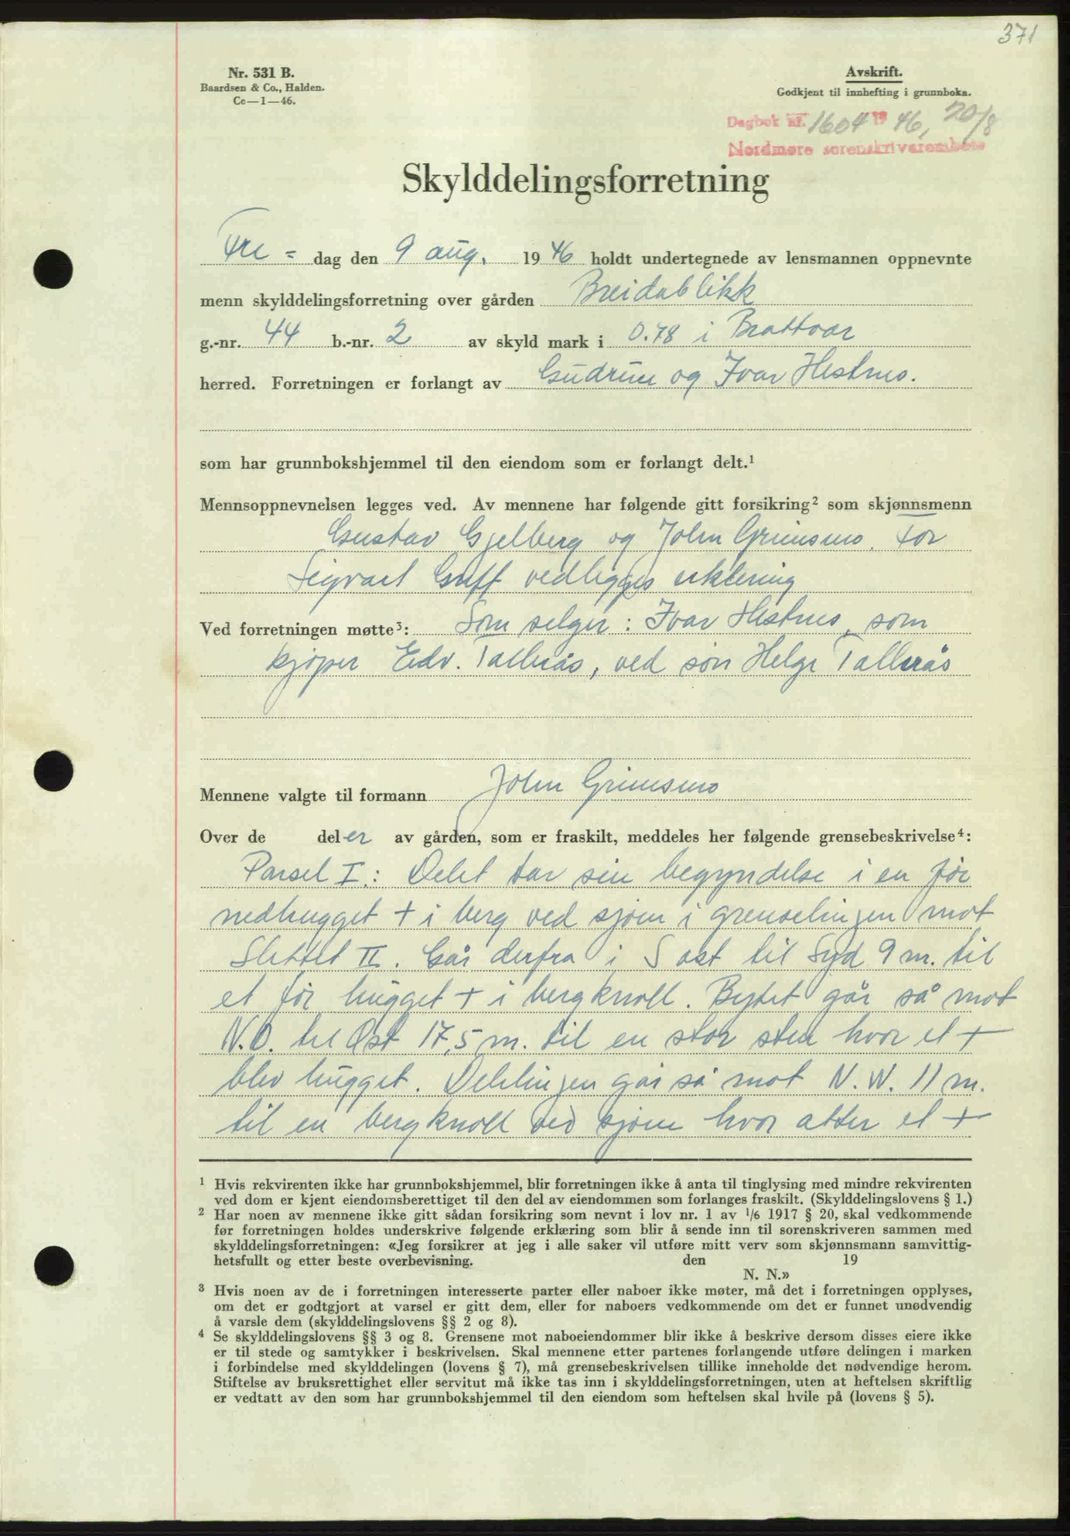 371
Nr. 531 B.
Baardsen & Co., Halden.
Cc—1—46.
Avskrift.
Godkjent til innhefting i grunnboka.
Dagbok nr. 1604 19 46, 20/8
Nordmøre sorenskriverembete
Skylddelingsforretning
Fre = dag den 9 aug. 19 46 holdt undertegnede av lensmannen oppnevnte
menn skylddelingsforretning over gården Breidablikk
g.-nr. 44 b.-nr. 2 av skyld mark i 0.78 i Brattvær
herred. Forretningen er forlangt av Gudrun og Ivar Hestnes.
som har grunnbokshjemmel til den eiendom som er forlangt delt.¹
Mennsoppnevnelsen legges ved. Av mennene har følgende gitt forsikring² som skjønnsmenn
Gustav Gjelberg og John Grimsmo. For
Sigvart vedlegges erklering
Ved forretningen møtte³: Som selger: Ivar Hestnes, som
kjøper Edv. Tallerås, ved søn Helge Tallerås
Mennene valgte til formann John Grimsmo
Over de deler av gården, som er fraskilt, meddeles her følgende grensebeskrivelse⁴:
Parsel I.: Delet tar sin begyndelse i en før
nedhugget + i berg ved sjøen i grenselinjen mot
Slettet II. Går derfra i S ost til Syd 9 m. til
et før hugget + i bergknoll. Bytet går så mot
N.O. til Øst 17,5 m. til en stor sten hvor et +
blev hugget. Delelinjen går så mot N.W. 11 m.
til en bergknoll ved sjøen hvor atter et +
¹ Hvis rekvirenten ikke har grunnbokshjemmel, blir forretningen ikke å anta til tinglysing med mindre rekvirenten
ved dom er kjent eiendomsberettiget til den del av eiendommen som forlanges fraskilt. (Skylddelingslovens § 1.)
² Har noen av mennene ikke gitt sådan forsikring som nevnt i lov nr. 1 av 1/6 1917 § 20, skal vedkommende
før forretningen holdes underskrive følgende erklæring som blir å sende inn til sorenskriveren sammen med
skylddelingsforretningen: «Jeg forsikrer at jeg i alle saker vil utføre mitt verv som skjønnsmann samvittig-
hetsfullt og etter beste overbevisning. den 19
N. N.»
³ Hvis noen av de i forretningen interesserte parter eller naboer ikke møter, må det i forretningen opplyses,
om det er godtgjort at varsel er gitt dem, eller for naboers vedkommende om det er funnet unødvendig
å varsle dem (skylddelingslovens §§ 2 og 8).
⁴ Se skylddelingslovens §§ 3 og 8. Grensene mot naboeiendommer blir ikke å beskrive dersom disses eiere ikke
er til stede og samtykker i beskrivelsen. Skal mennene etter partenes forlangende utføre delingen i marken
i forbindelse med skylddelingen (lovens § 7), må grensebeskrivelsen tillike inneholde det nødvendige herom.
Stiftelse av bruksrettighet eller servitut må ikke tas inn i skylddelingsforretningen, uten at heftelsen skriftlig
er vedtatt av den som har grunnbokshjemmel til den eiendom som heftelsen skal hvile på (lovens § 5).